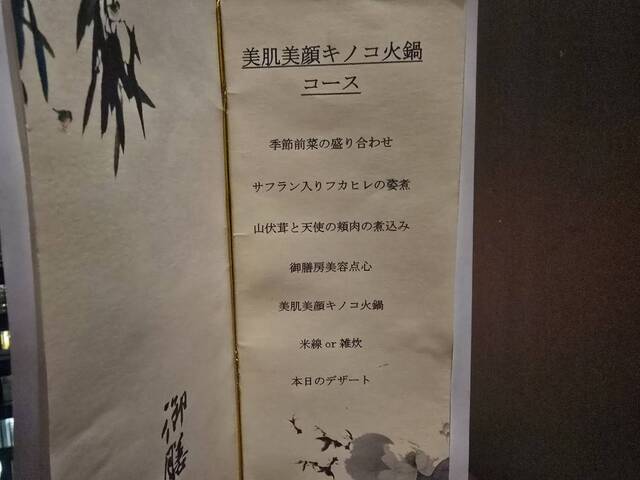 美肌美顔キノコ火鍋
コース
季節前菜の盛り合わせ
サフラン入りフカヒレの姿煮
山伏茸と天使の頬肉の煮込み
御膳房美容点心
美肌美顔キノコ火鍋
米線 or 雑炊
本日のデザート
御膳